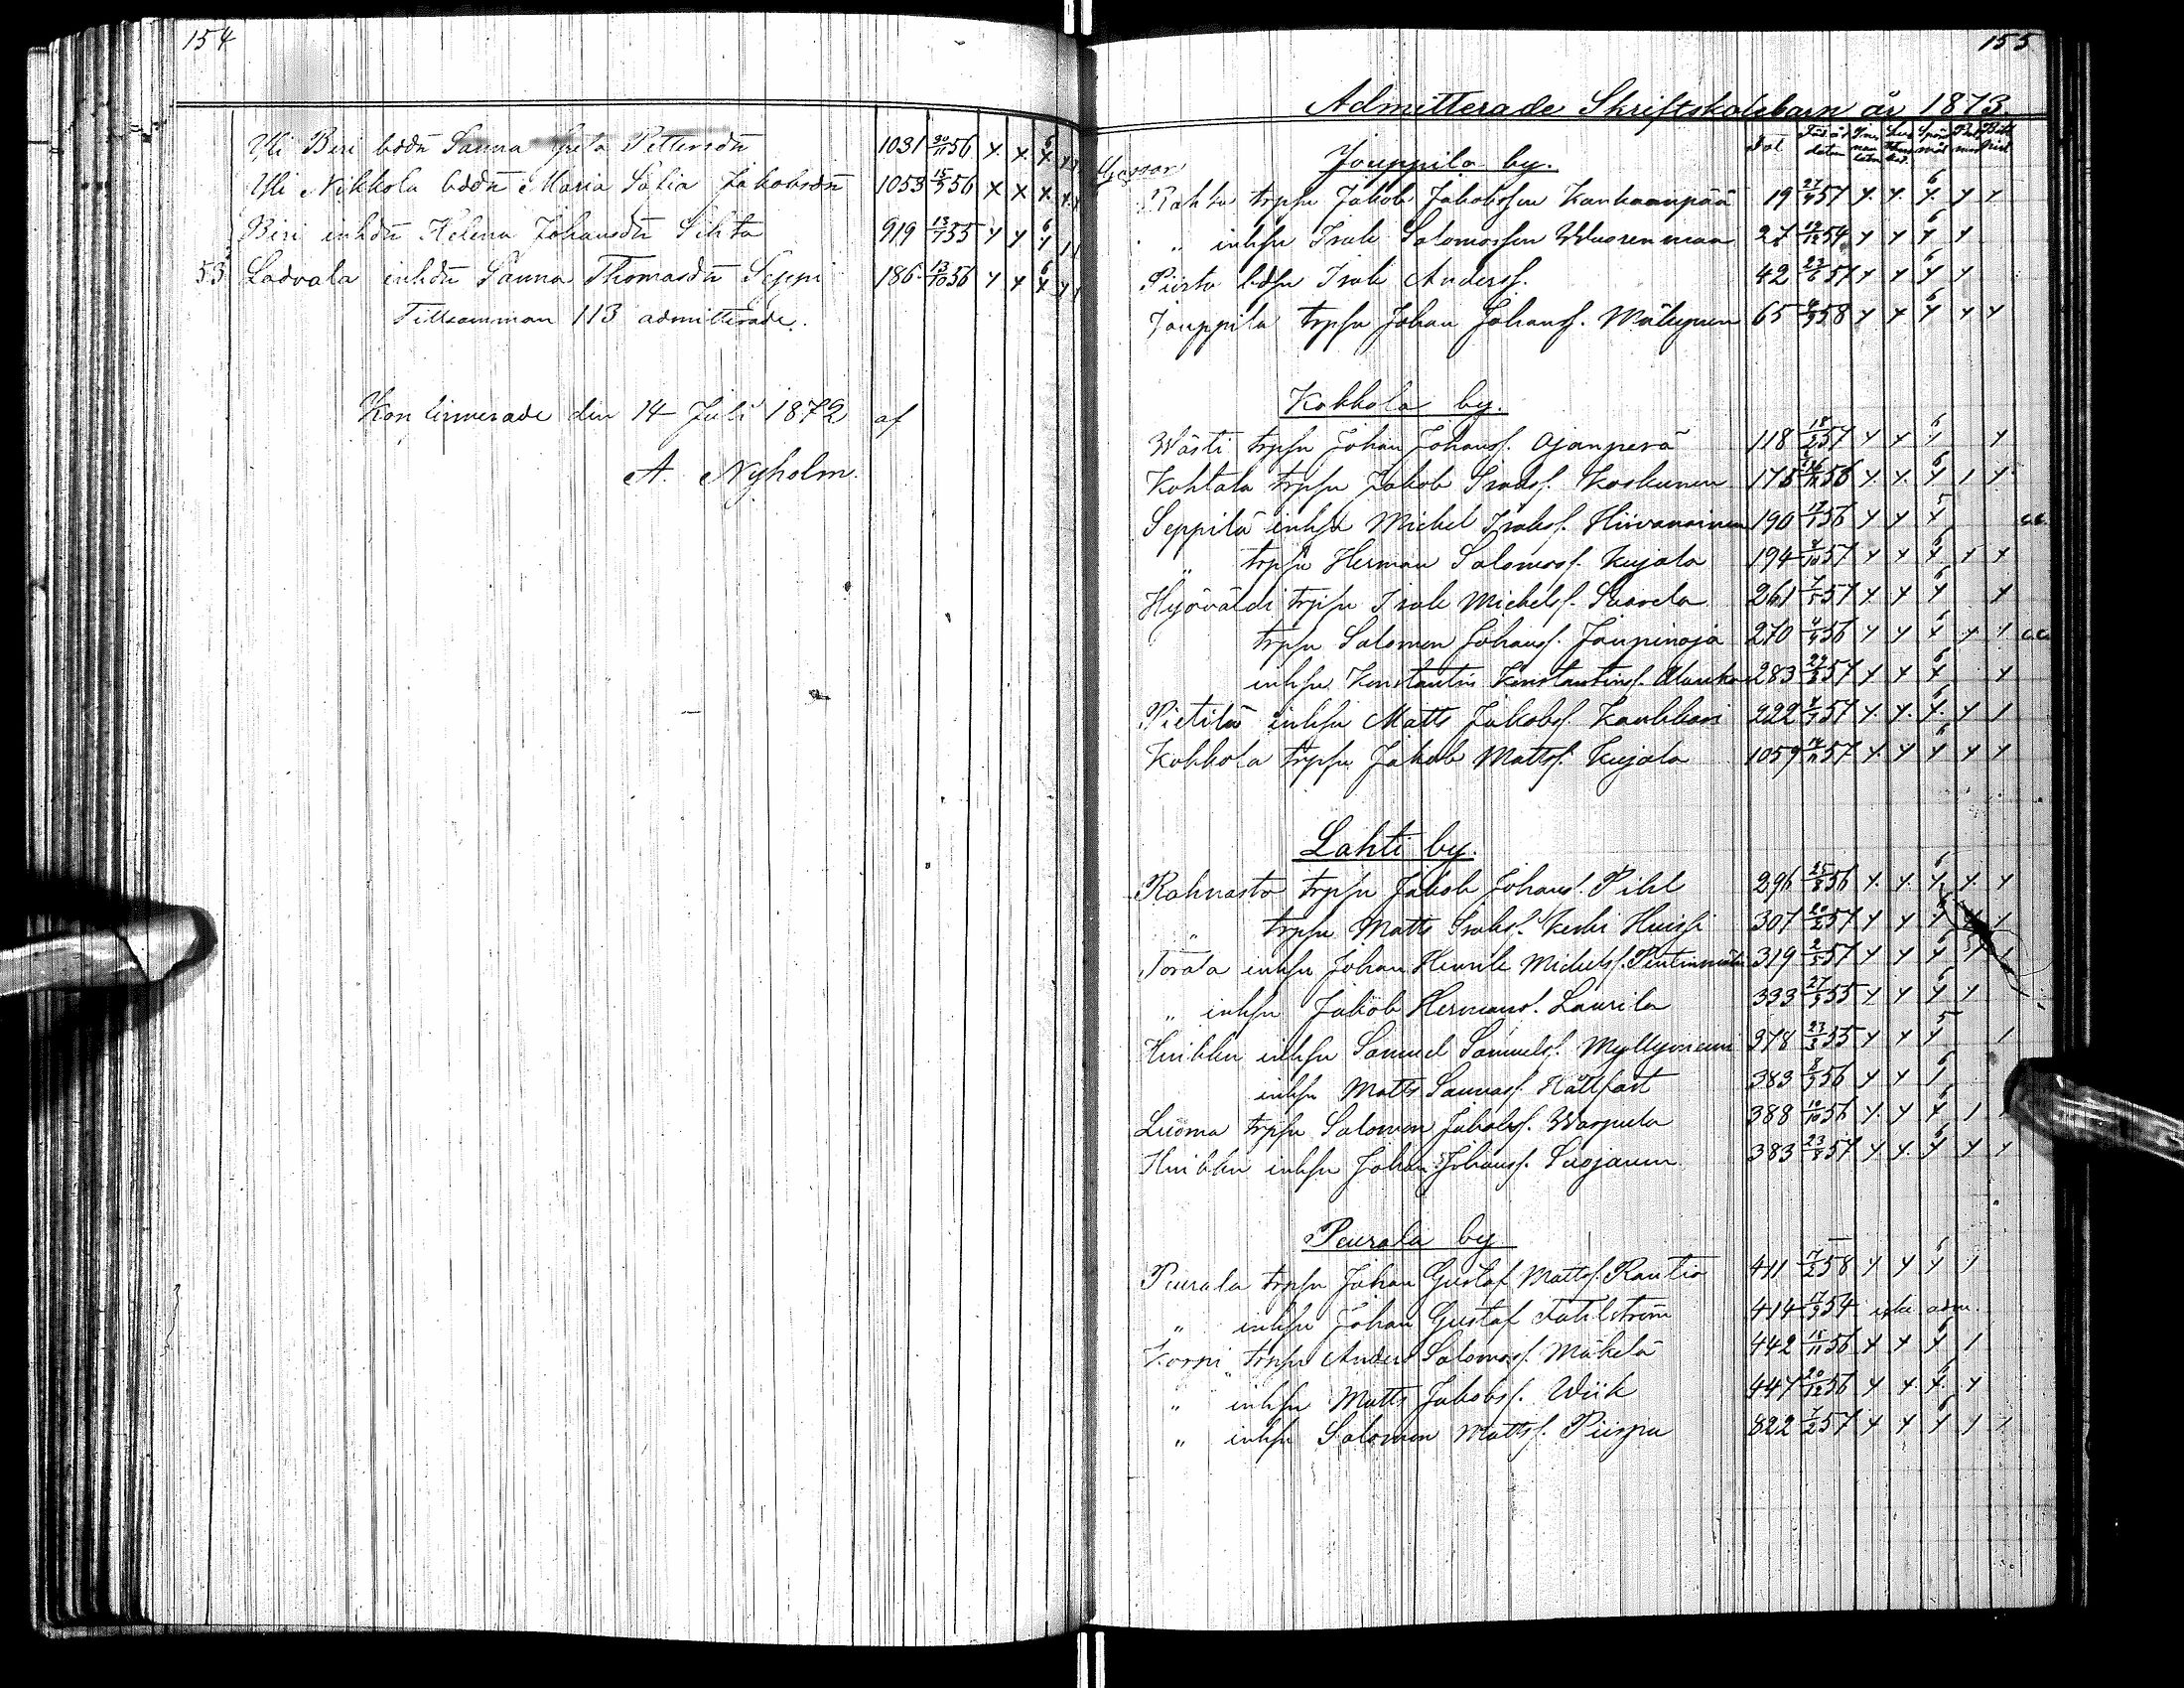 154
Yli Biri bddn Sanna Greta Pettersdn 1031 24/11 56 x x 6 x
Yli Nikkola bddn Maria Sofia Jakobsdn 1053 15/5 56 x x x
Biri inhdn Helena Johansdn Sihto 919 13/7 55 x x 6 x
53 Ladvala inhdn Sanna Thomasdn Seppi 186 13/10 56 x x 6 x
Tillsamman 113 admitterade.
Konfirmerade den 14 Juli 1872 af
A. Nyholm.
155
Admitterade Skriftskolebarn år 1873.
Gossar
Jouppila by.
trpsn Jakob Jakobsson Kankaanpää 19 27/4 57 x x 6 x x x
" inhsn Isak Salomonsson Wuorenmaa 27 12/12 54 x x 6 x x
Piirto bdsn Isak Anderss. 42 23/6 57 x x 6 x x
Jouppila trpsn Johan Johanss. Mäkynen 65 58 x x 6 x x x
Kokkola by.
Wästi trpsn Johan Johanss. Ojanperä 118 18/2 57 x x 6 x x
Kohtala trpsn Jakob Isaks. Koskunen 56 x x 6 x 1 x
Seppilä inhsn Michel Isaks. Hiivanainen 190 17/1 56 x x 5 x c.c.
" trpsn Herman Salomos. Kujala 194 4/10 57 x x 6 x x x
Hyöväldi trpsn Isak Michels. Saarela 261 7/5 57 x x 6 x x
trpsn Salomon Johans. Joupinoja 270 56 x x 6 x x 1 c.c.
inhsn Konstantin Konstantins. 283 57 x x 6 x x
Pietilä inhsn Matts Jakobs. Kaukkari 222 57 x x 6 x x 1
Kokkola trpsn Jakob Matts. Kujala 1059 14/11 57 x x 6 x x x
Lahti by.
Rahnasto trpsn Jakob Johans. Pihl 296 25/8 56 x x 6 x x x
" trpsn Matts Isaks. Keski Huissi 307 20/2 57 x x 6 x
Torala inhsn Johan Henrik Michels. Pentinmäki 319 2/5 57 x x 6 x
" inhsn Jakob Hermans. Laurila 333 27/5 55 x x 6 x x
Knikku inhsn Samuel Samuels. Myllyniemi 378 23/3 55 x x 5 x 1
inhsn Matts Sannas. Hållfast 383 56 x x 6
Luoma trpsn Salomon Jakobs. Warpula 388 10/10 56 x x 6 x 1
Knikku inhsn Johan Johans. Suojanen 383 23/8 57 x x 6 x x x
Paurala by.
Paurala trpsn Johan Gustaf Matts. Rautio 411 17/2 58 x x 6 x 1
" inhsn Johan Gustaf Fahlström 414 17/9 54 icke adm.
Korpi trpsn Anders Salomos. Mäkelä 442 15/11 56 x x 6 x 1
" inhsn Matts Jakobs. Wiik 447 20/12 56 x x 6 x x
" inhsn Salomon Matts. Piispa 822 7/2 57 x x 6 x 1 1